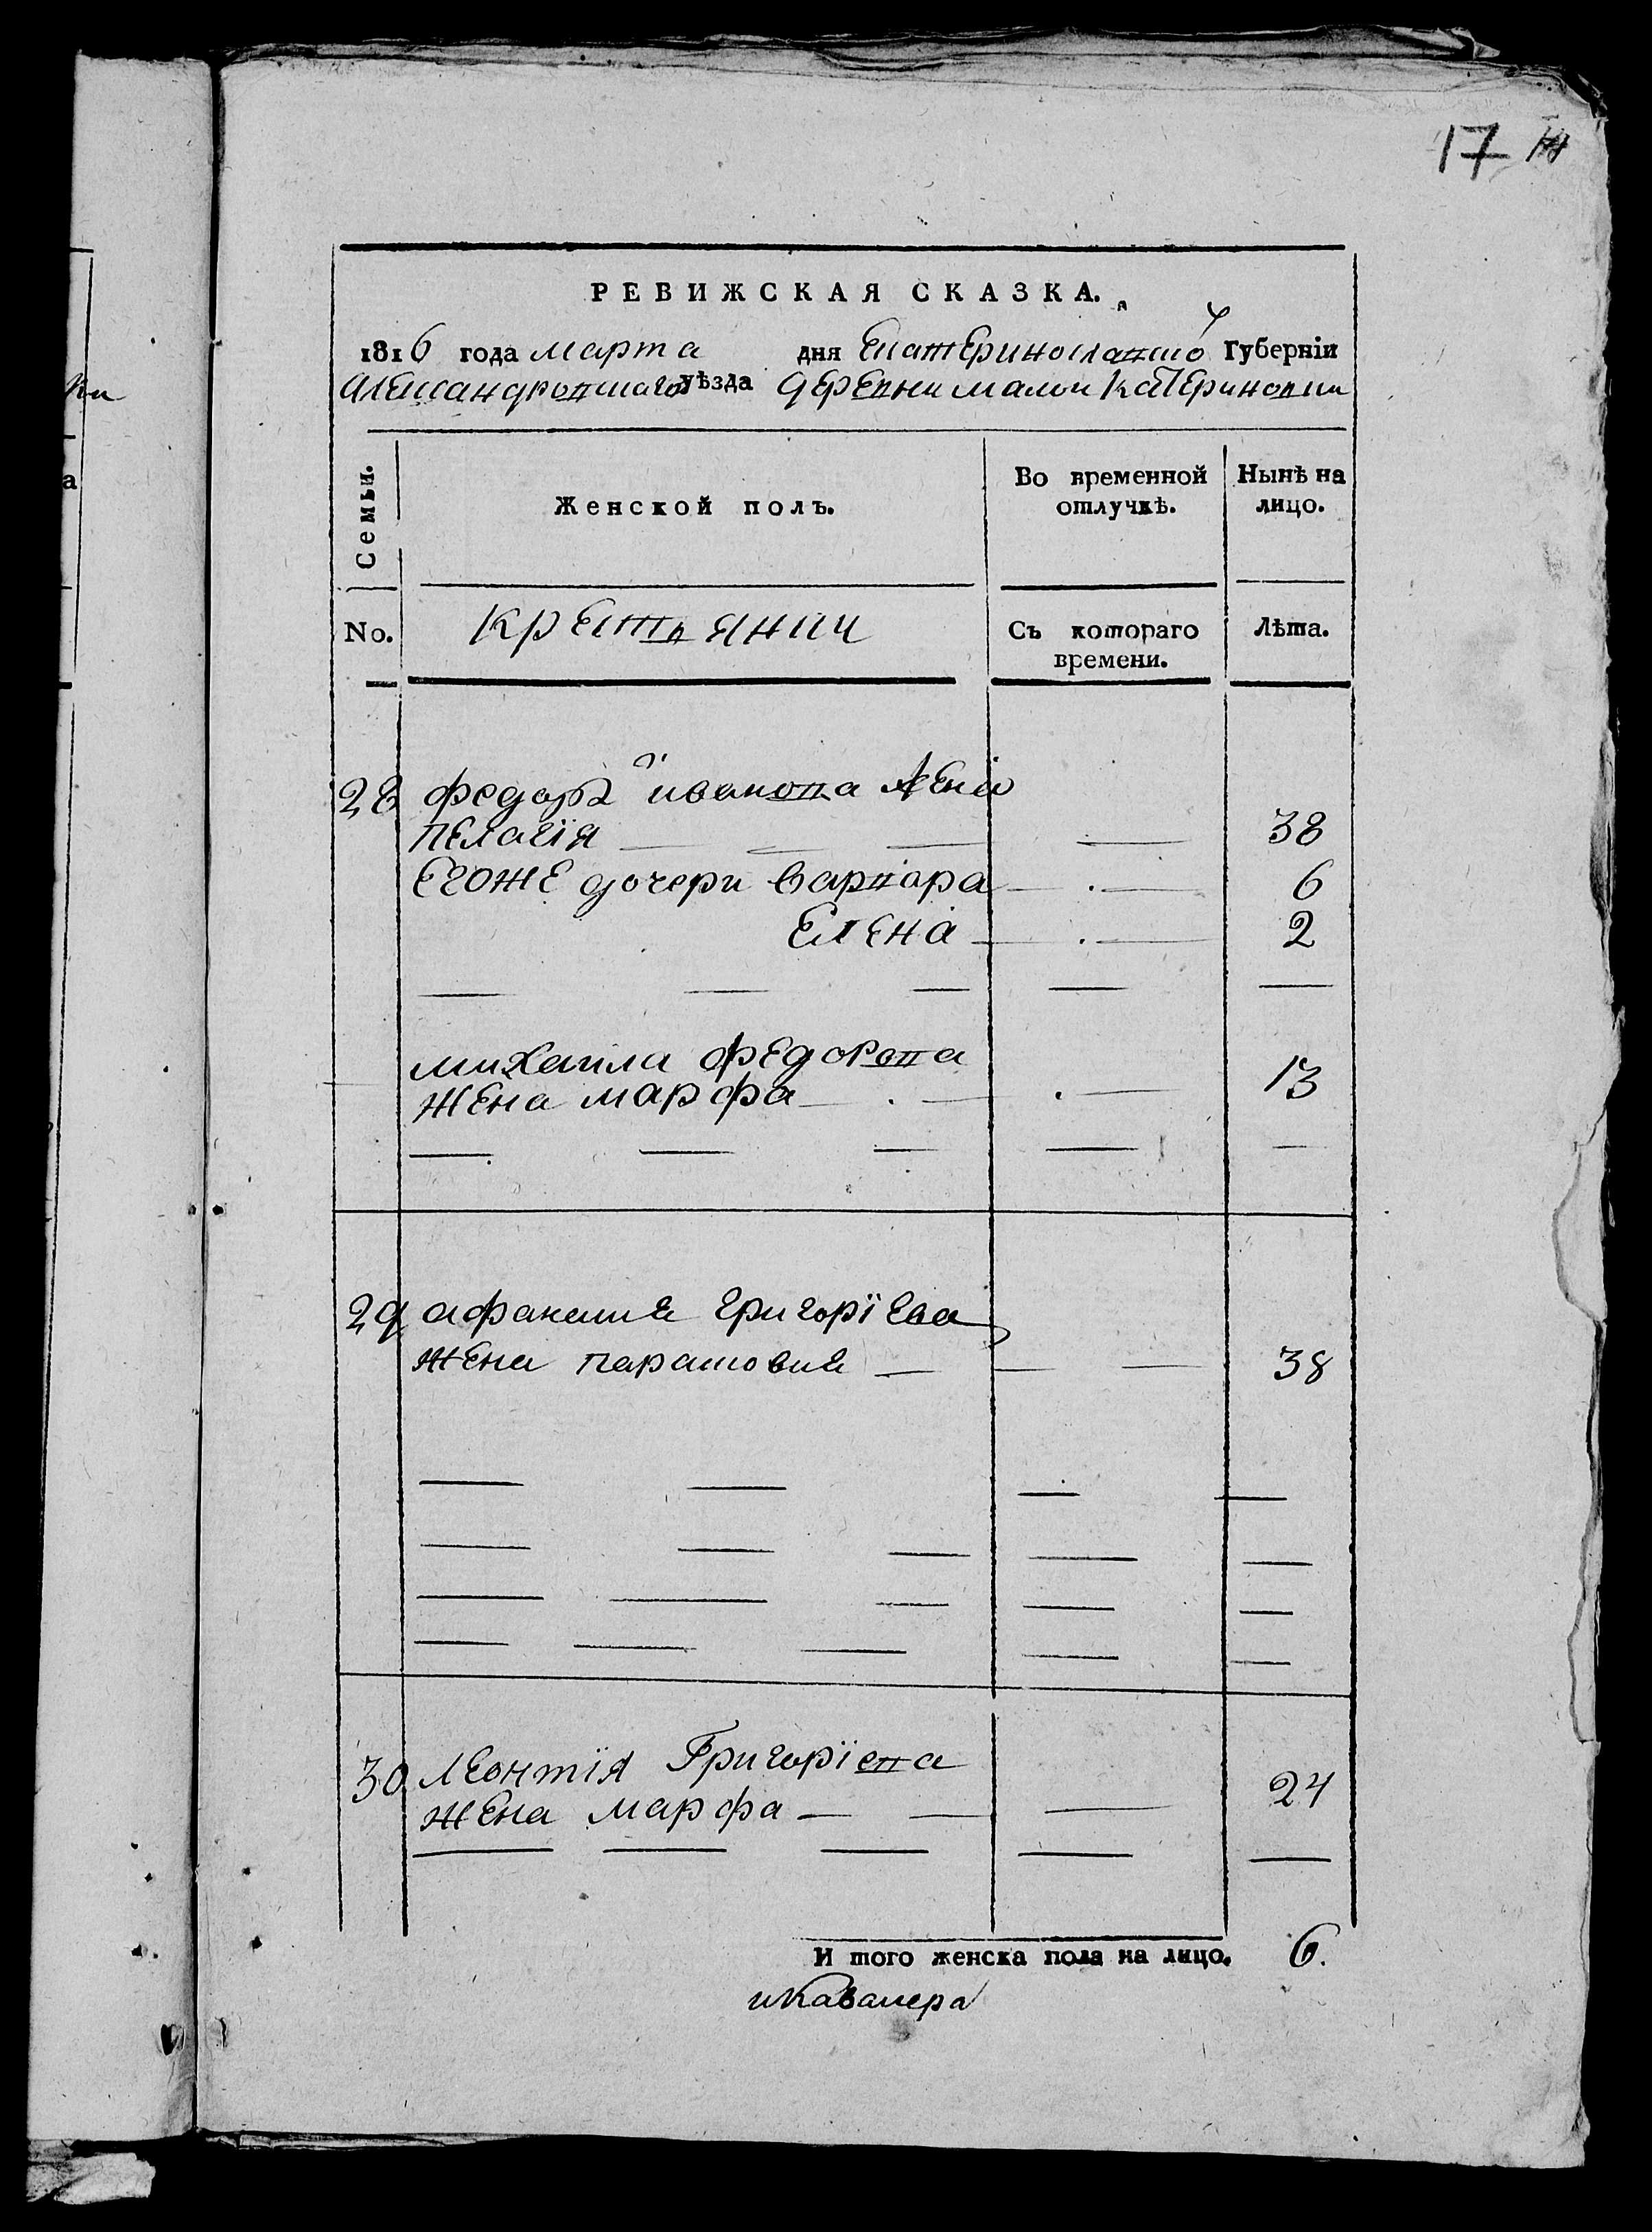 17
РЕВИЖСКАЯ СКАЗКА.
1816 года марта дня Екатеринославской Губерніи
Александровского уѣзда деревни малой катериновки
Семьи.
Женской полъ.
Во временной отлучкѣ.
Нынѣ на лицо.
No.
крестьянки
Съ котораго времени.
Лѣта.
28 федора иванова жена
пелагїя 38
егоже дочери варвара 6
елена 2
михаила федорова
жена марфа 13
29 афанасия григорїева
жена парасковия 38
30 леонтїя Григорїева
жена марфа 24
И того женска пола на лицо. 6.
икавалера